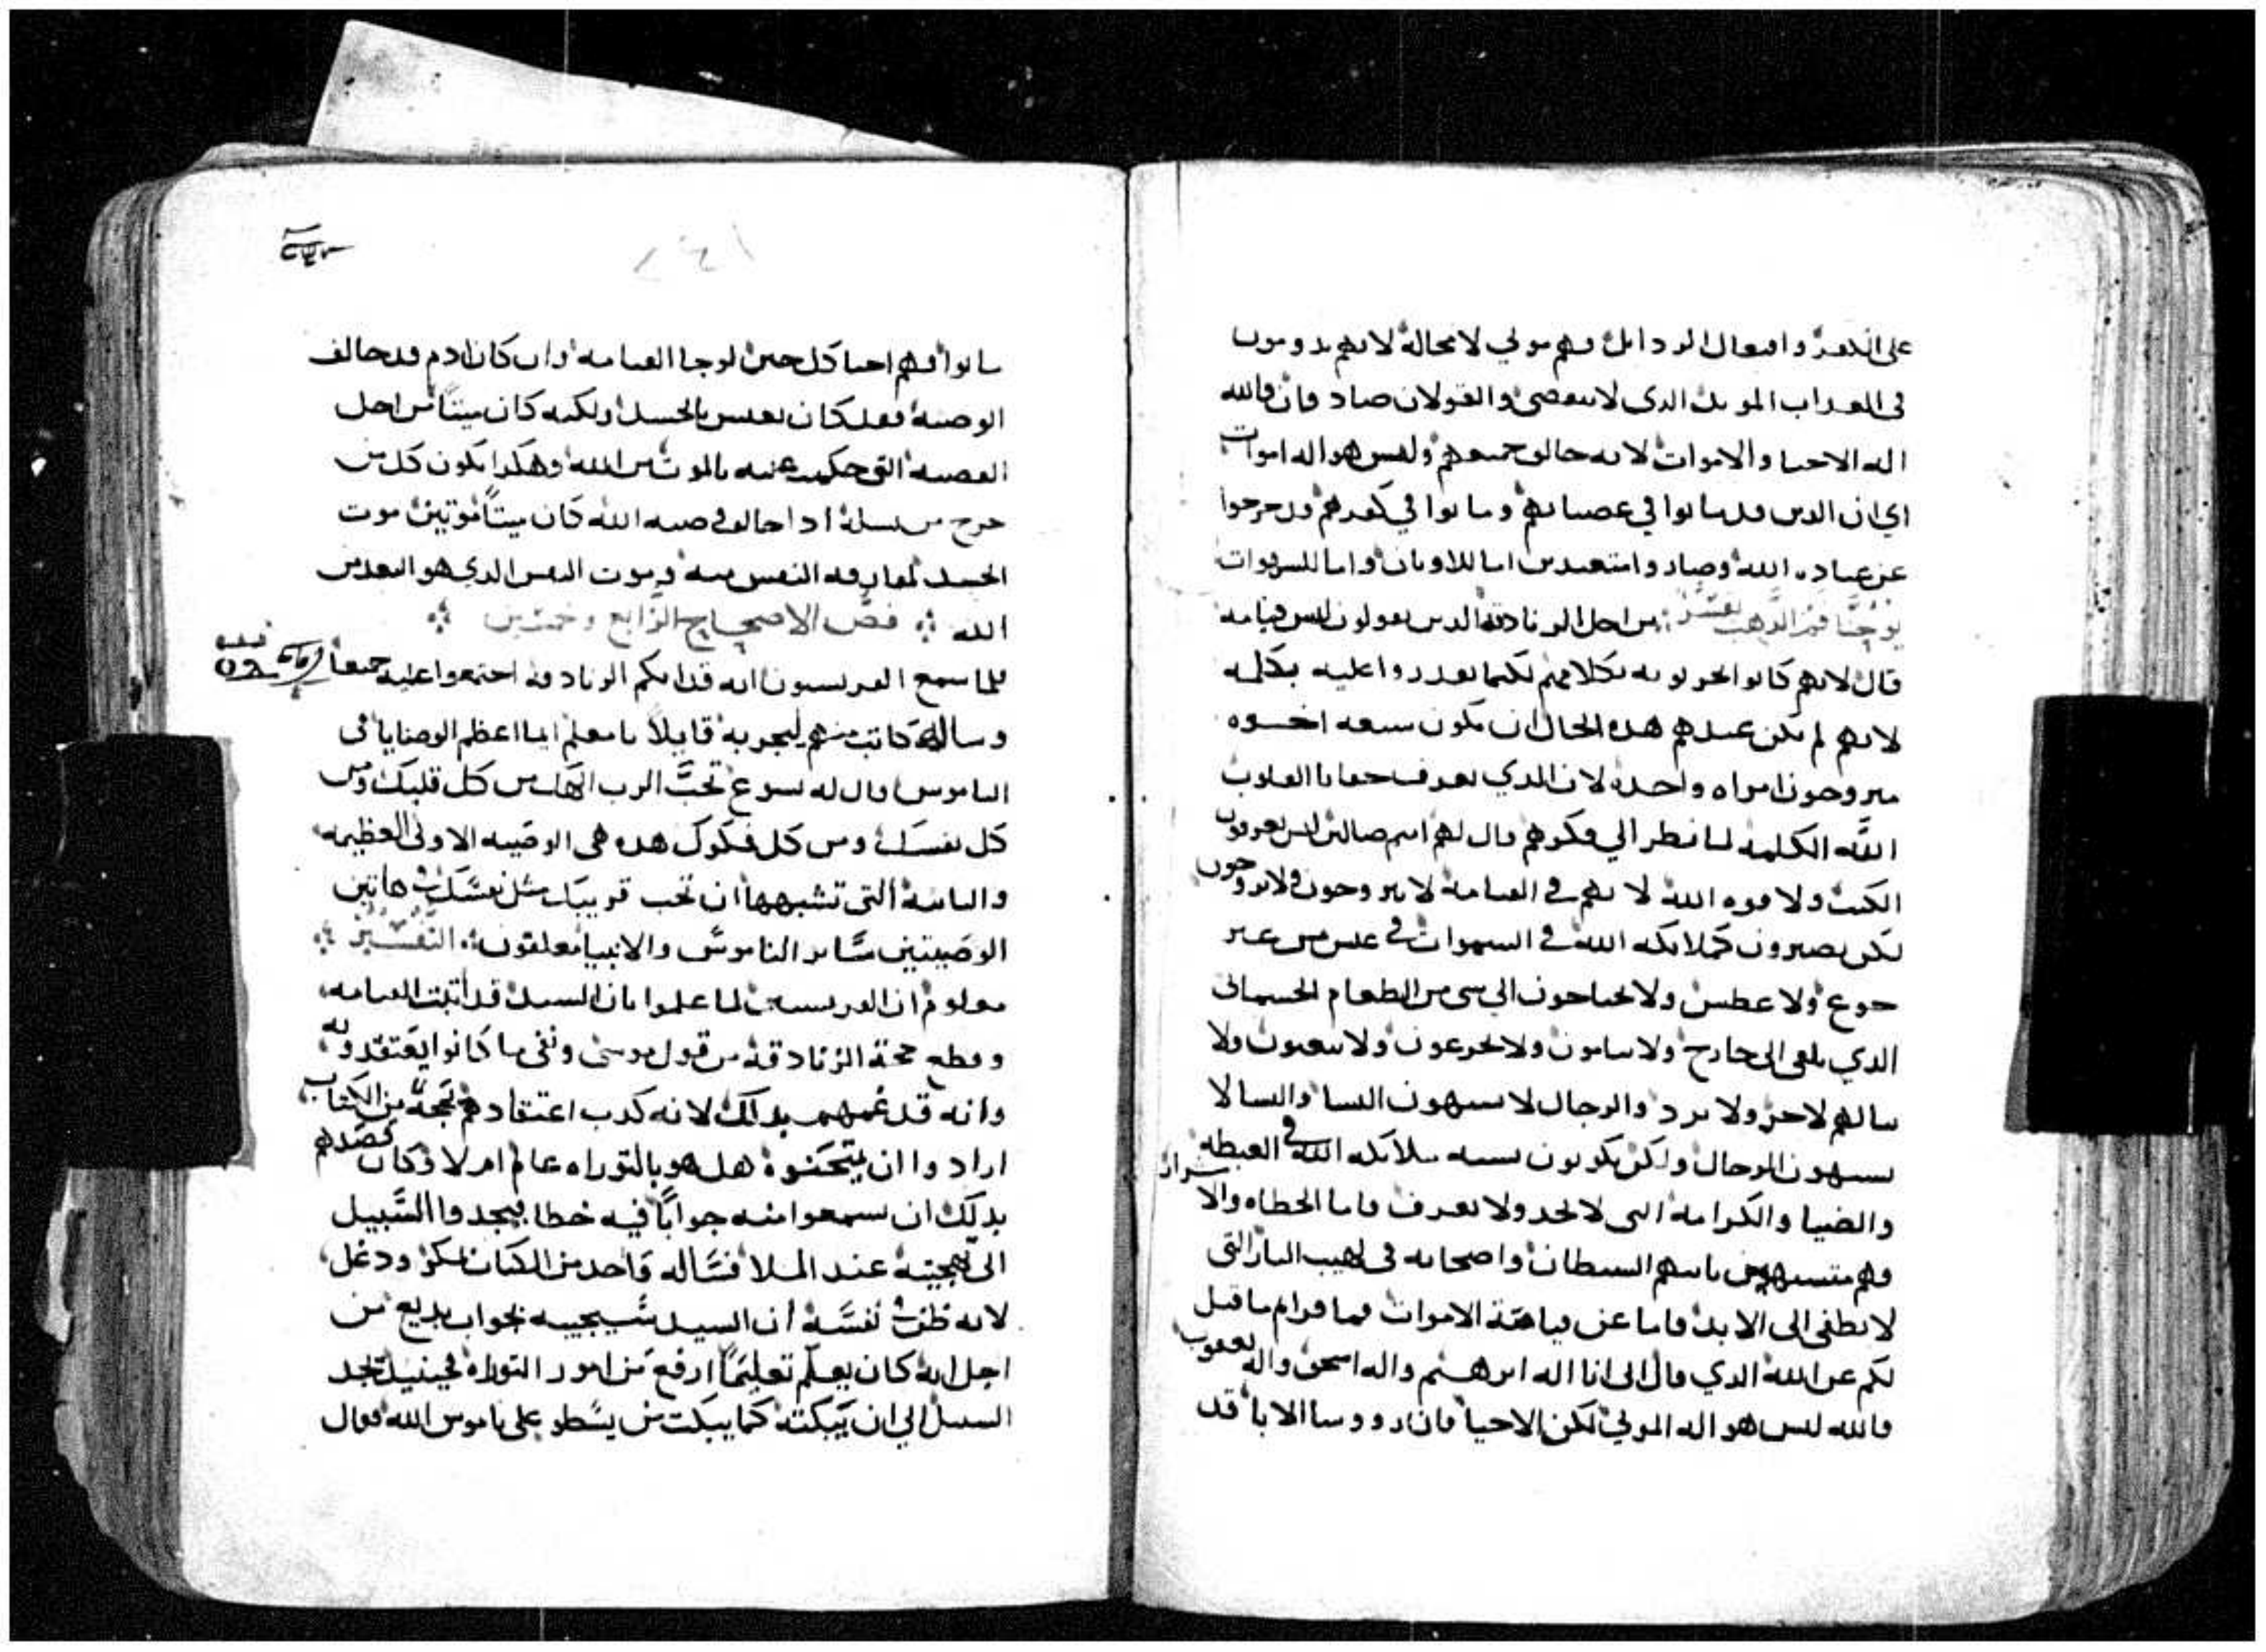 على الكفر وافعال الردايل فهم موتي لا محالة لانهم يدومون
في العداب الموبد الدي لا ينقضي والقولان صادقان فالله
اله الاحيا والاموات لانه خالق جميعهم وليس هو اله اموات
اي ان الدين قد ماتوا في عصيانهم وماتوا في كفرهم قد خرجوا
عن عبادة الله وصاروا متعبدين اما للاوتان واما للشهوات
يوحنا فم الدهب يفسر من اجل الزنادقة الدين يقولون ليس قيامه
قال لانهم كانوا يجربونه بكلامهم لكيما يقدروا عليه بكلمه
لانهم لم يكن عندهم هده الحال ان يكون سبعه اخوه
يتزوجون امراه واحده لان الدي يعرف خفايا القلوب
الله الكلمه لما نظر الي فكرهم قال لهم انتم ضالين ليس تعرفون
الكتب ولا قوه الله لانهم في القيامة لا يتزوجون ولا يزوجون
لكن يصيرون كملايكه الله في السموات في عيش من غير
جوع ولا عطش ولا يحتاجون الي شي من الطعام الجسماني
الدي يلقى الى خارج ولا ينامون ولا يجزعون ولا يتعبون ولا
ينالهم لا حر ولا برد والرجال لا يشتهون النسا والنسا لا
يشتهون الرجال ولكن يكونون يشبه ملايكه الله في الغبطه
والضيا والكرامة التي لا تحد ولا تعرف فاما الخطاه والاشرار
فهم متشبهين بابيهم الشيطان واصحابه في لهيب النار التي
لا تطفى الى الابد فاما عن قيامة الاموات فما قراتم ما قيل
لكم عن الله الدي قال اني انا اله ابرهيم واله اسحق واله يعقوب
فالله ليس هو اله الموتي لكن الاحيا فان رووسا الابا قد
ماتوا فهم احيا كل حين لرجا القيامه وان كان ادم قد خالف
الوصيه فقد كان بعيش بالجسد ولكنه كان ميتًا من اجل
القضيه التي حكمت عليه بالموت من الله وهكدا يكون كل من
خرج من نسله ادا خالف وصيه الله كان ميتًا موتين موت
الجسد لمفارقه النفس منه وموت النفس الدي هو البعد من
الله فص الاصحاح الرابع وخمسين
فلما سمع الفريسيون انه قد ابكم الزنادقه اجتمعوا عليه جميعًا
وساله كاتب منهم ليجربه قايلاً يا معلم ايما اعظم الوصايا في
الناموس قال له يسوع تحب الرب الهك من كل قلبك ومن
كل نفسك ومن كل فكرك هده هي الوصيه الاولى العظيمه
والثانيه التي تشبهها ان تحب قريبك مثل نفسك هاتين
الوصيتين ساير الناموس والانبيا معلقون التفسير
معلوم ان الفريسيين لما علموا بان السيد قد اثبت القيامه
وقطع حجة الزنادقة من قول موسى ونفى ما كانوا يعتقدونه
وانه قد غمهم بدلك لانه كدب اعتقادهم بحجة من الكتاب
ارادوا ان يمتحنوه هل هو بالتوراه عالم ام لا وكان قصدهم
بدلك ان يسمعوا منه جوابًا فيه خطا فيجدوا السبيل
الى تهجينه عند الملا فساله واحد من الكتاب بمكر ودغل
لانه ظن في نفسه ان السيد سيجيبه بجواب بديع من
اجل انه كان يعلم تعليمًا ارفع من امور التوراه فحينيد تجد
السبيل الي ان يبكته كما يبكت من يسطو على ناموس الله فقال